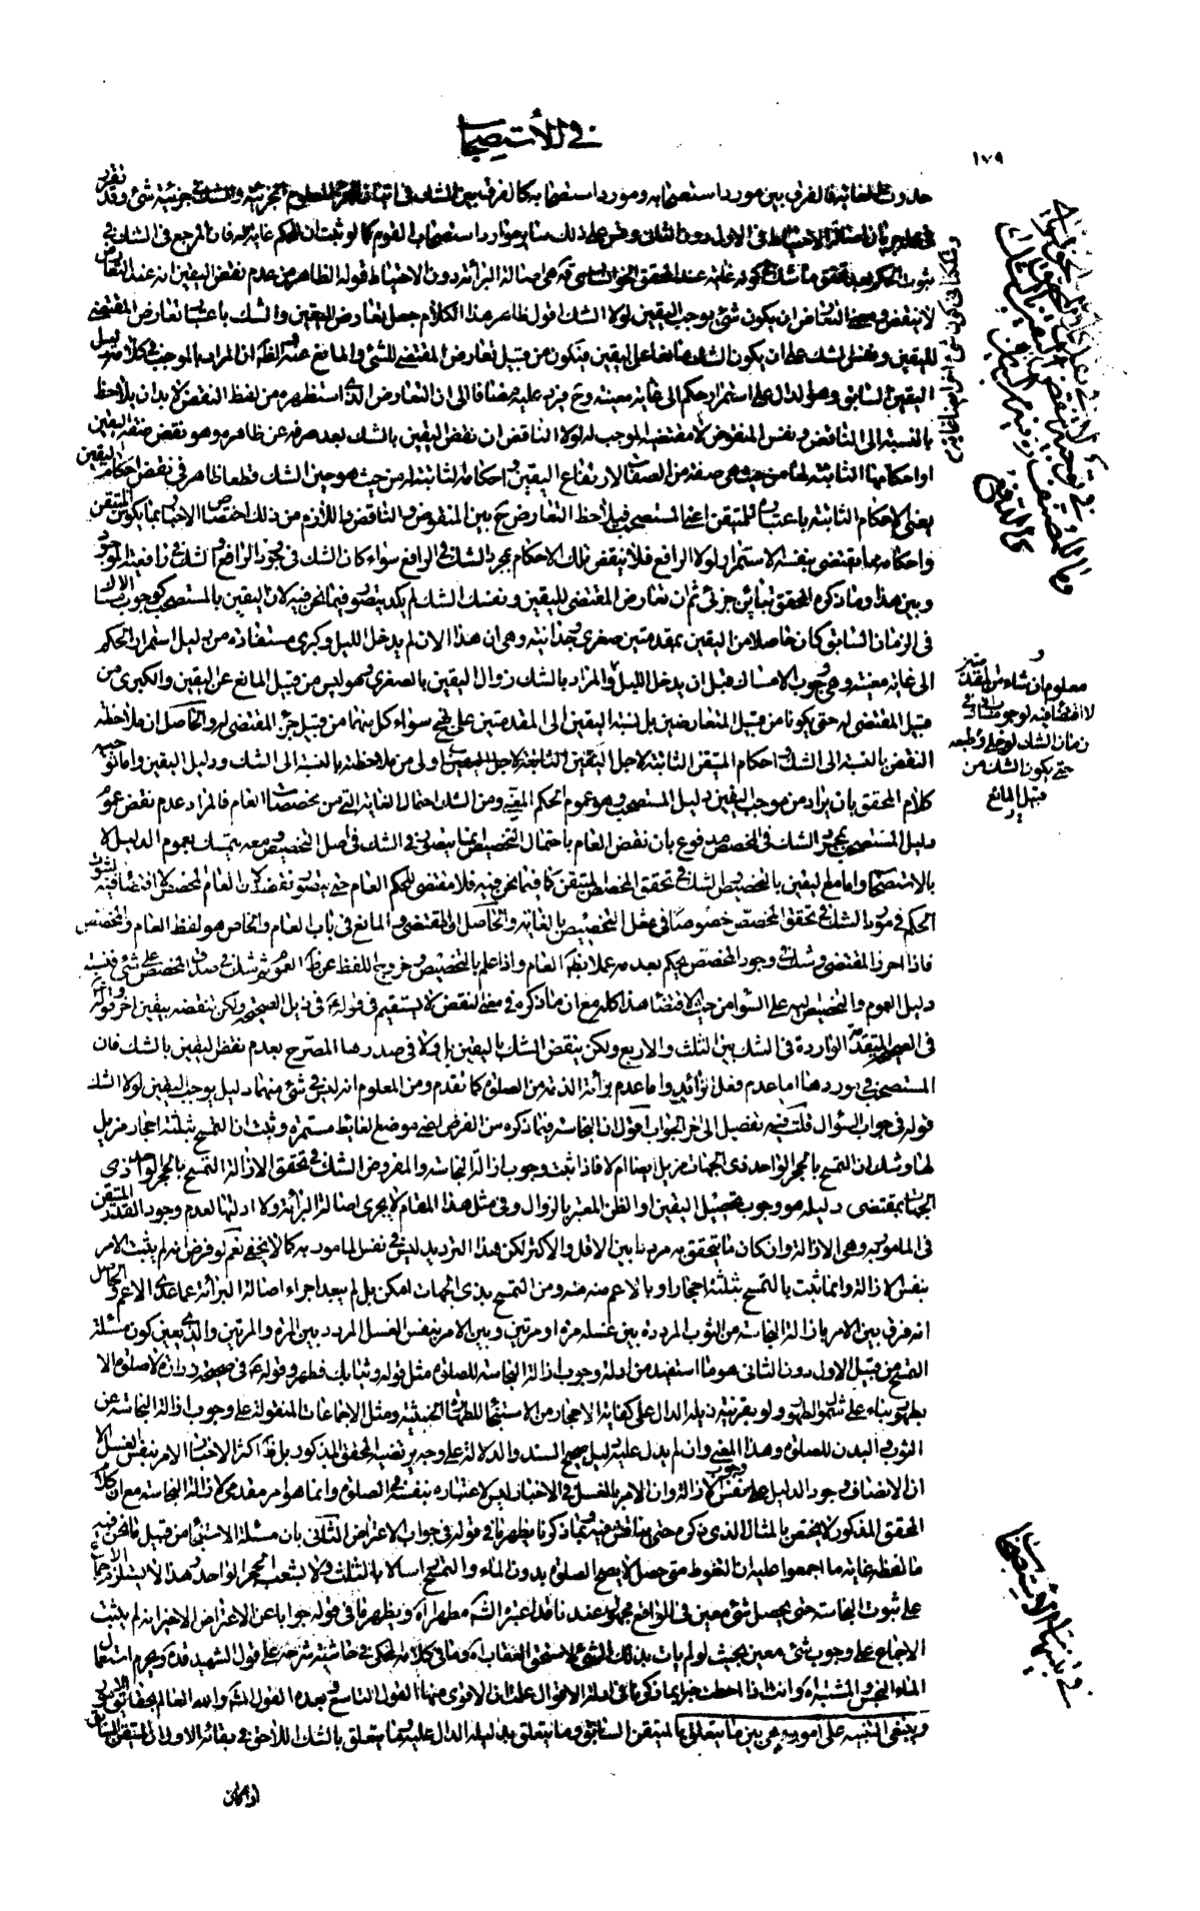 في الأستصحاب
١٧٩
حدوث الغاية فالفرق بين مورد استصحابه ومورد استصحابه كالفرق بين الشك في اتيان الجزء المعلوم الجزئية والشك في جزئية شيء وقد تقرر
في محله جريان اصالة الاحتياط في الاول دون الثاني وقس على ذلك سائر موارد استصحاب القوم كما لو ثبت ان للحكم غاية فان المرجع في الشك في
ثبوت الحكم بعد تحقق ما شك في كونه غاية عند المحقق الخوانساري قده هي اصالة البرائة دون الاحتياط قوله الظاهر من عدم نقض اليقين انه عند التعارض
لا ينقض ومعنى التعارض ان يكون شيء يوجب اليقين لولا الشك اقول ظاهر هذا الكلام جعل تعارض اليقين والشك باعتبار تعارض المقتضي
لليقين ونفس الشك على ان يكون الشك مانعا عن اليقين فيكون من قبيل تعارض المقتضي للشيء والمانع عنه والظ ان المراد بالموجب في كلامه دليل
اليقين السابق وهو الدال على استمرار حكم الى غاية معينة وح فيرد عليه مضافا الى ان التعارض الذي استظهره من لفظ النقض لا بد ان يلاحظ
بالنسبة الى الناقض ونفس المنقوض لا مقتضيه الموجب له لولا الناقض ان نقض اليقين بالشك بعد صرفه عن ظاهره وهو نقض صفة اليقين
او احكامها الثابتة لها من حيث هي صفة من الصفات لارتفاع اليقين واحكامه الثابتة له من حيث هو حين الشك قطعا ظاهر في نقض احكام اليقين
يعني الاحكام الثابتة باعتباره للمتيقن اعني المستصحب فيلاحظ التعارض ح بين المنقوض والناقض واللازم من ذلك اختصاص الاخبار بما يكون المتيقن
واحكامه مما يقتضي بنفسه الاستمرار لولا الرافع فلا ينقض تلك الاحكام بمجرد الشك في الرافع سواء كان الشك في وجود الرافع او الشك في رافعية الموجود
وبين هذا وما ذكره المحقق تباين جزئي ثم ان تعارض المقتضي لليقين ونفس الشك لم يكد يتصور فيما نحن فيه لان اليقين بالمستصحب كوجوب الامساك
في الزمان السابق كان حاصلا من اليقين بمقدمتين صغرى وجدانية وهي ان هذا الان لم يدخل الليل وكبرى مستفادة من دليل استمرار الحكم
الى غاية معينة وهي وجوب الامساك قبل ان يدخل الليل والمراد بالشك زوال اليقين بالصغرى وهو ليس من قبيل المانع عن اليقين والكبرى من
قبيل المقتضي له حتى يكونا من قبيل المتعارضين بل نسبة اليقين الى المقدمتين على نهج سواء كل منهما من قبيل جزء المقتضي له والحاصل ان ملاحظة
النقض بالنسبة الى الشك واحكام المتيقن الثابتة لاجل اليقين اولى من ملاحظته بالنسبة الى الشك ودليل اليقين واما توجيه
كلام المحقق بان يراد من موجب اليقين دليل المستصحب وهو عموم الحكم المغيى ومن الشك احتمال الغاية التي من مخصصات العام فالمراد عدم نقض عموم
دليل المستصحب بمجرد الشك في المخصص مدفوع بان نقض العام باحتمال التخصيص انما يتصور في الشك في اصل التخصيص ومعه يتمسك بعموم الدليل لا
بالاستصحاب واما مع اليقين بالتخصيص والشك في تحقق المخصص المتيقن كما فيما نحن فيه فلا مقتضي للحكم العام حتى يتصور نقضه لان العام المخصص لا اقتضاء فيه لثبوت
الحكم في مورد الشك في تحقق المخصص خصوصا في مثل التخصيص بالغاية والحاصل ان المقتضي والمانع في باب العام والخاص هو لفظ العام والمخصص
فاذا احرز المقتضي وشك في وجود المخصص يحكم بعدمه عملا بظاهر العام واذا علم بالتخصيص وخروج اللفظ عن ظاهر العموم ثم شك في صدق المخصص على شيء فنسبة
دليل العموم والتخصيص اليه على السواء من حيث الاقتضاء هذا كله مع ان ما ذكره في معنى النقض لا يستقيم في قوله ع في ذيل الصحيحة ولكن تنقضه بيقين اخر وقوله ع
في الصحيحة المتقدمة الواردة في الشك بين الثلث والاربع ولكن ينقض الشك باليقين بل ولا في صدرها المصرح بعدم نقض اليقين بالشك فان
المستصحب في موردها اما عدم فعل الزائد واما عدم برائة الذمة من الصلوة كما تقدم ومن المعلوم انه ليس في شيء منهما دليل يوجب اليقين لولا الشك
قوله في جواب السؤال قلت فيه تفصيل الى اخر الجواب اقول ان النجاسة فيما ذكره من الفرض اعني موضع الغائط مستمرة وثبت ان التمسح بثلثة احجار مزيل
لها وشك ان التمسح بالحجر الواحد ذي الجهات مزيل ايضا ام لا فاذا ثبت وجوب ازالة النجاسة والمفروض الشك في تحقق الازالة بالتمسح بالحجر الواحد ذي
الجهات بمقتضى دليله هو وجوب تحصيل اليقين او الظن المعتبر بالزوال وفي مثل هذا المقام لا يجري اصالة البرائة ولا ادلتها لعدم وجود القدر المتيقن
في المامور به وهي الازالة وان كان ما يتحقق به مرددا بين الاقل والاكثر لكن هذا الترديد ليس في نفس المامور به كما لا يخفى نعم لو فرض انه لم يثبت الامر
بنفس الازالة وانما ثبت بالتمسح بثلثة احجار او بالاعم منه ومن التمسح بذي الجهات امكن بل لم يبعد اجراء اصالة البرائة عما عدا الاعم والحاصل
انه فرق بين الامر بازالة النجاسة من الثوب المرددة بين غسله مرة او مرتين وبين الامر بنفس الغسل المردد بين المرة والمرتين والذي يعين كون مسئلة
التمسح من قبيل الاول دون الثاني هو ما استفيد من ادلة وجوب ازالة النجاسة للصلوة مثل قوله وثيابك فطهر وقوله ع في صحيحة زرارة لا صلوة الا
بطهور بناء على شمول الطهور ولو بقرينة ذيله الدال على كفاية الاحجار من الاستنجاء للطهارة الخبثية ومثل الاجماعات المنقولة على وجوب ازالة النجاسة عن
الثوب والبدن للصلوة وهذا المعنى وان لم يدل عليه دليل صحيح السند والدلالة على وجه يرتضيه المحقق المذكور بل ظاهر اكثر الاخبار الامر بنفس الغسل الا
ان الانصاف وجود الدليل على وجوب نفس الازالة وان الامر بالغسل في الاخبار ليس لاعتباره بنفسه في الصلوة وانما هو امر مقدمي لازالة النجاسة مع ان كلام
المحقق المذكور لا يختص بالمثال الذي ذكره حتى يناقش فيه وبما ذكرنا يظهر ما في قوله في جواب الاعتراض الثاني بان مسئلة الاستنجاء من قبيل ما نحن فيه
ما لفظه غاية ما اجمعوا عليه ان التغوط متى حصل لا يصح الصلوة بدون الماء والتمسح راسا لا بالثلث ولا بشعب الحجر الواحد وهذا لا يستلزم الاجماع
على ثبوت النجاسة حتى يحصل شيء معين في الواقع مجهول عندنا قد اعتبره الشارع مطهرا اه ويظهر ما في قوله جوابا عن الاعتراض الاخير انه لم يثبت
الاجماع على وجوب شيء معين بحيث لو لم يات بذلك الشيء لاستحق العقاب اه وما في كلامه المحكي في حاشية شرحه على قول الشهيد قده ويحرم استعمال
الماء النجس والمشتبه اه وانت اذا احطت خبرا بما ذكرنا في ادلة الاقوال علمت ان الاقوى منها القول التاسع وبعده القول المشهور والله العالم بحقائق الامور
وينبغي التنبيه على امور وهي بين ما يتعلق بالمتيقن السابق وما يتعلق بدليله الدال عليه وما يتعلق بالشك اللاحق في بقائه الاول ان المتيقن السابق
اذا كان
معلوم ان
لا اقتضاء فيه لوجوب
زمان الشك لو خلي وطبعه
حتى يكون الشك من
قبيل المانع
في تنبيهات الاستصحاب